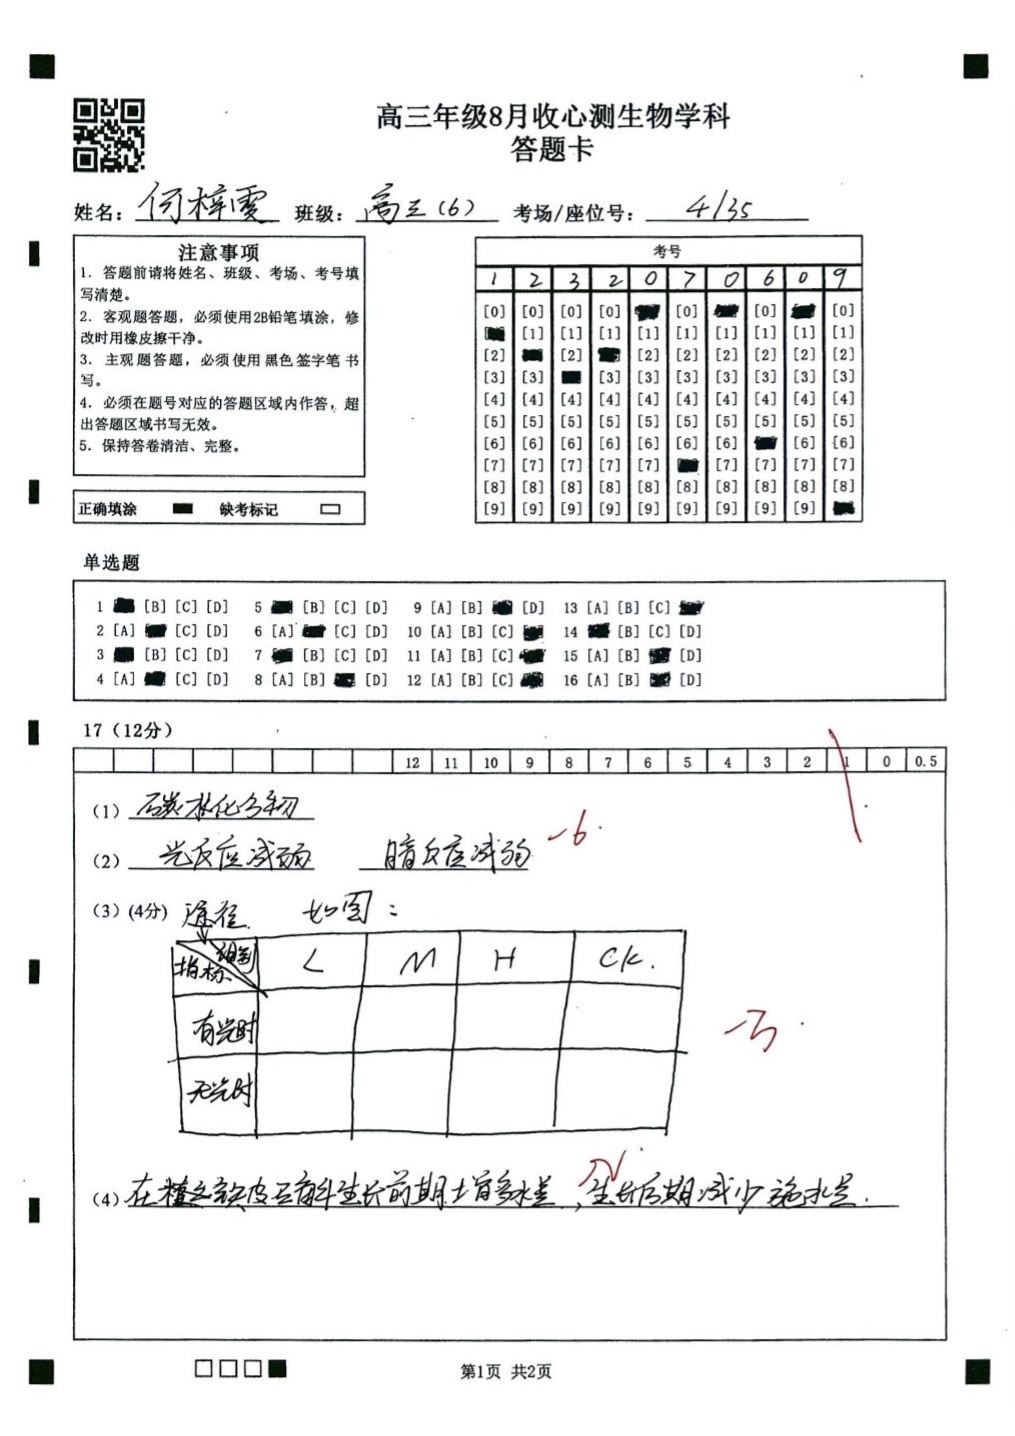 高三年级8月收心测生物学科
答题卡
姓名：何梓雯 班级：高三(6) 考场/座位号：4/35
注意事项
1．答题前请将姓名、班级、考场、考号填
写清楚。
2．客观题答题，必须使用2B铅笔填涂，修
改时用橡皮擦干净。
3．主观题答题，必须使用黑色签字笔书
写。
4．必须在题号对应的答题区域内作答，超
出答题区域书写无效。
5．保持答卷清洁、完整。
正确填涂 缺考标记
考号
1 2 3 2 0 7 0 6 0 9
[0] [0] [0] [0] [0] [0] [0]
[1] [1] [1] [1] [1] [1] [1] [1] [1]
[2] [2] [2] [2] [2] [2] [2] [2]
[3] [3] [3] [3] [3] [3] [3] [3] [3]
[4] [4] [4] [4] [4] [4] [4] [4] [4] [4]
[5] [5] [5] [5] [5] [5] [5] [5] [5] [5]
[6] [6] [6] [6] [6] [6] [6] [6] [6]
[7] [7] [7] [7] [7] [7] [7] [7] [7]
[8] [8] [8] [8] [8] [8] [8] [8] [8] [8]
[9] [9] [9] [9] [9] [9] [9] [9] [9]
单选题
1 [B] [C] [D] 5 [B] [C] [D] 9 [A] [B] [D] 13 [A] [B] [C]
2 [A] [C] [D] 6 [A] [C] [D] 10 [A] [B] [C] 14 [B] [C] [D]
3 [B] [C] [D] 7 [B] [C] [D] 11 [A] [B] [C] 15 [A] [B] [D]
4 [A] [C] [D] 8 [A] [B] [D] 12 [A] [B] [C] 16 [A] [B] [D]
17（12分）
12 11 10 9 8 7 6 5 4 3 2 1 0 0.5
（1）碳水化合物
（2）光反应减弱 暗反应减弱 -6
（3）(4分) 途径 如图：
组别 L M H CK.
指标
有光时
无光时
-3
（4）在植之款皮豆自斗生长前期土曾多水量，生长后期减少施水量.
第1页 共2页